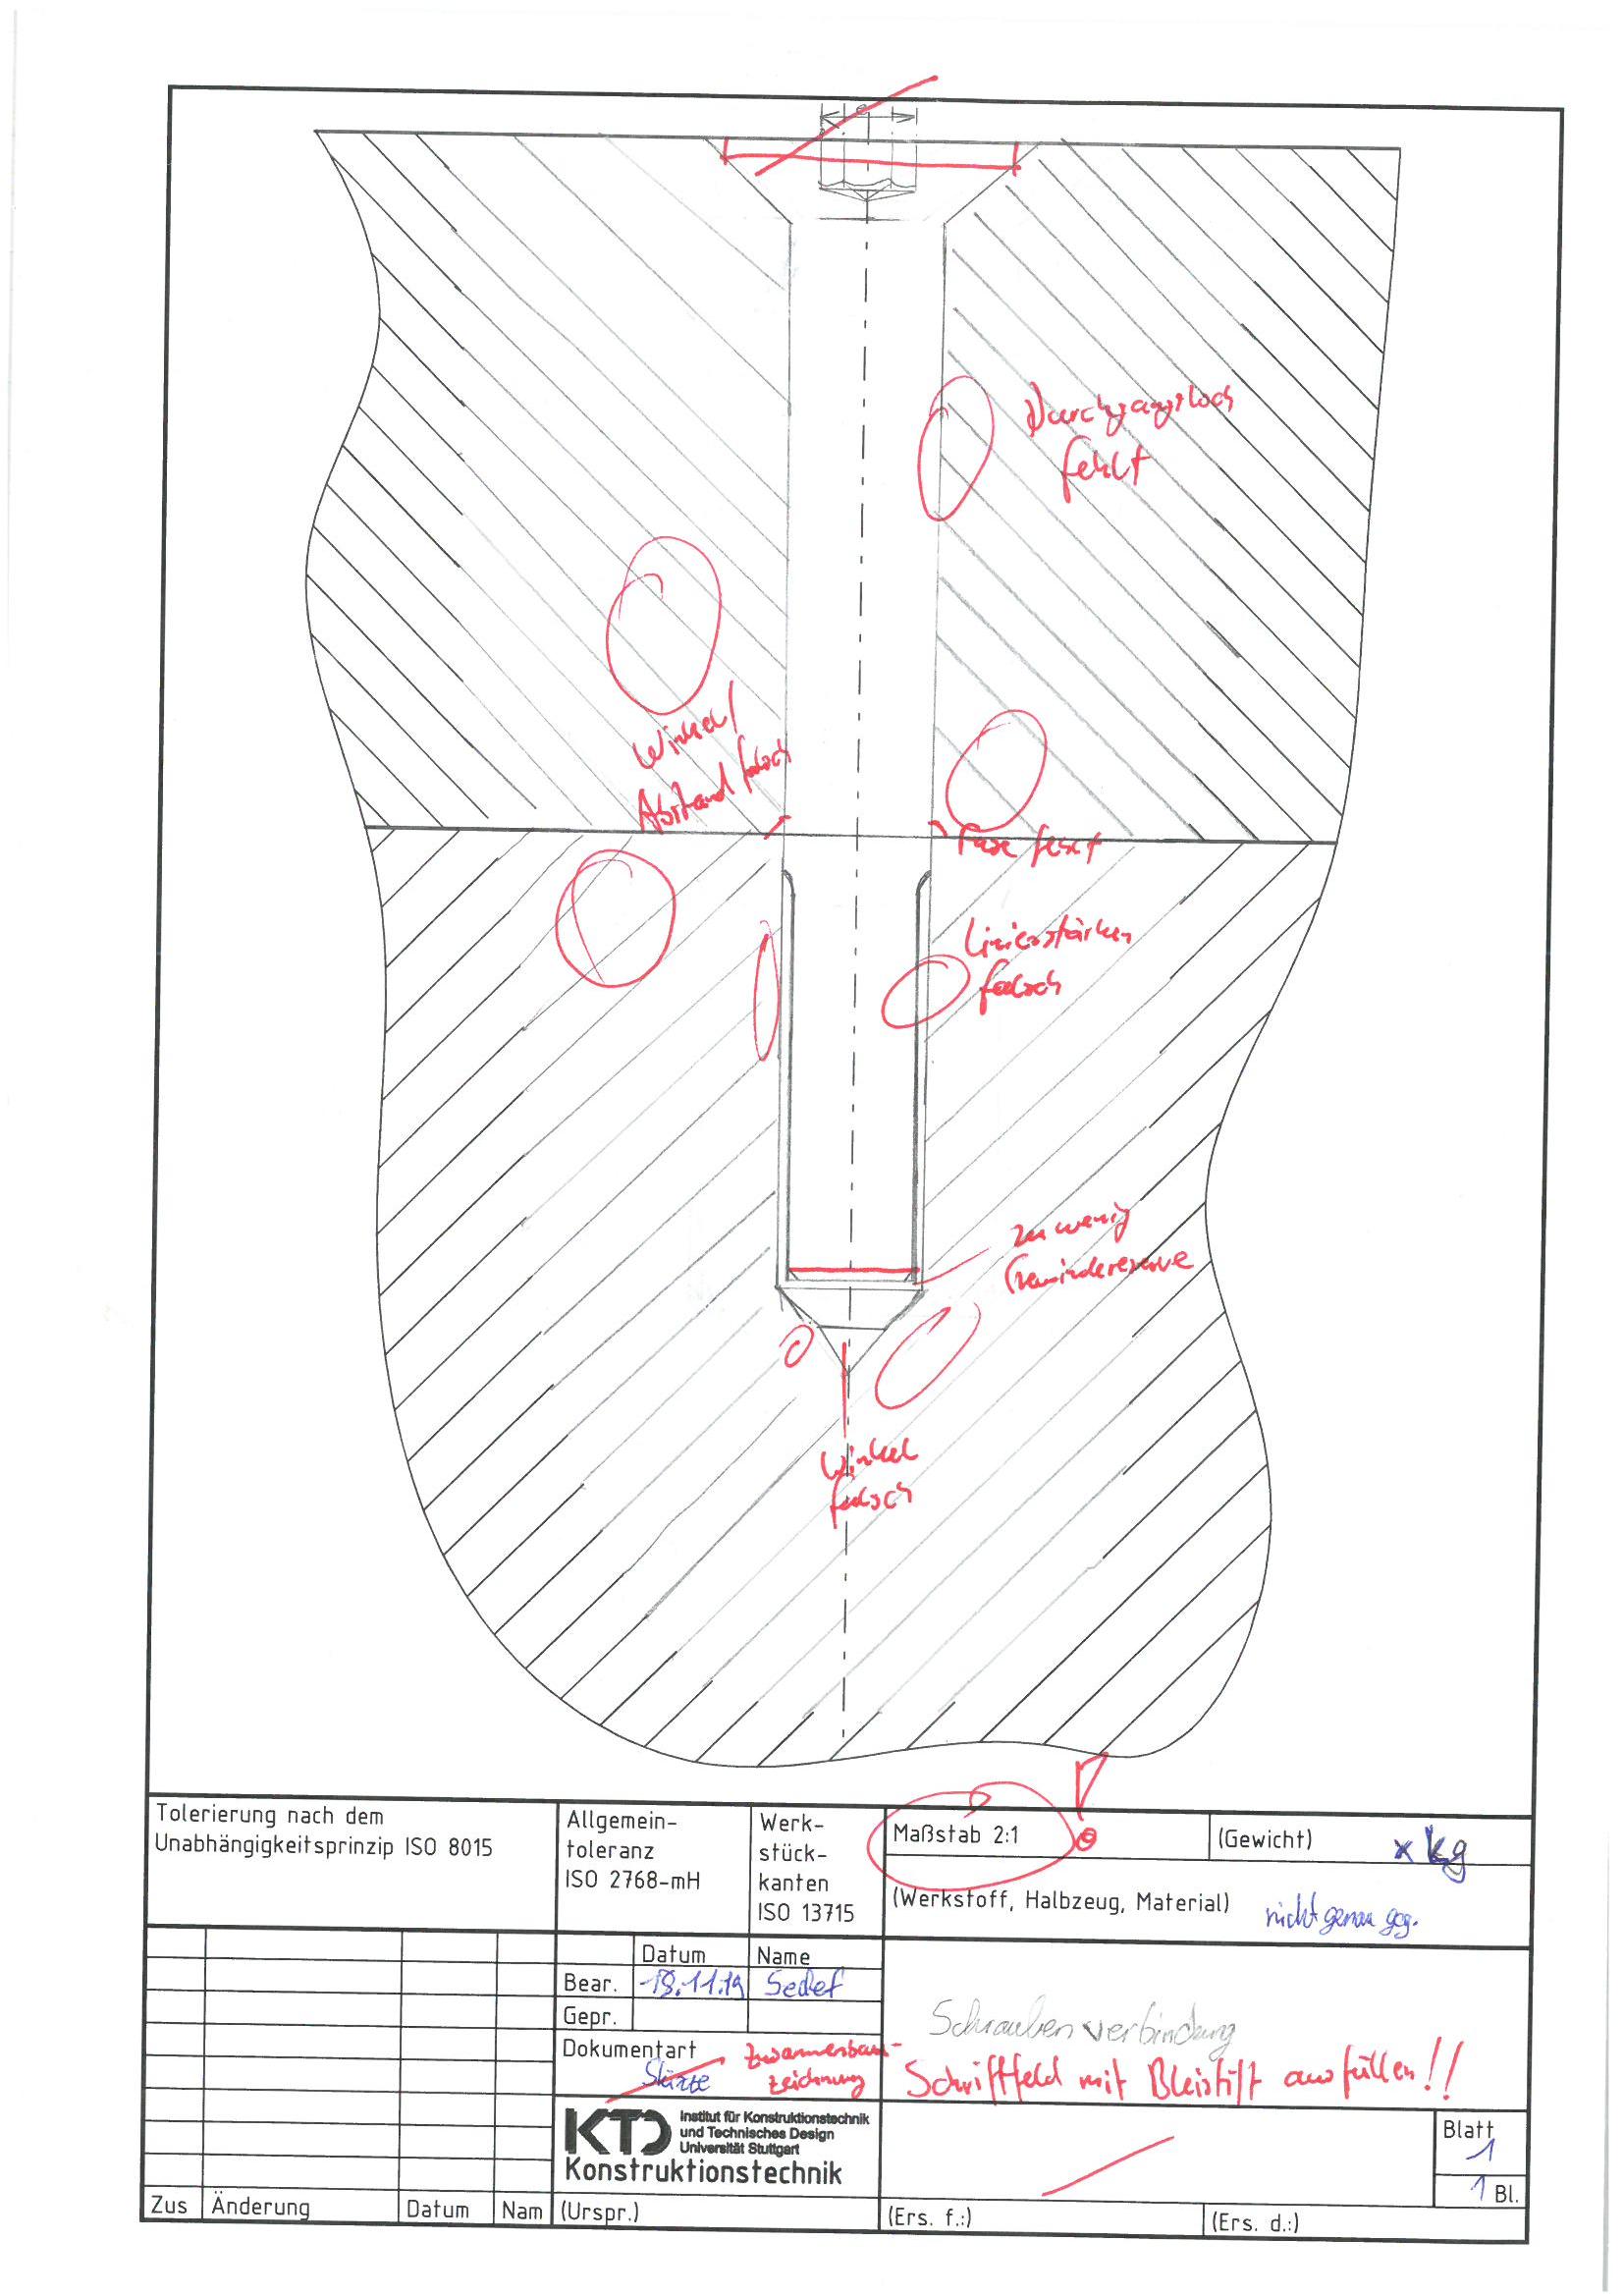 Durchgangsloch
fehlt
Winkel/
Abstand falsch
Fase fehlt
Linienstärken
falsch
zu wenig
Gewindereserve
Winkel
falsch
Tolerierung nach dem
Unabhängigkeitsprinzip ISO 8015
Allgemein-
toleranz
ISO 2768-mH
Werk-
stück-
kanten
ISO 13715
Maßstab 2:1
(Gewicht) x kg
(Werkstoff, Halbzeug, Material) nicht genau geg.
Datum Name
Bear. 19.11.19 Sedef
Gepr.
Dokumentart
Skizze
Zusammenbau-
zeichnung
Schraubenverbindung
Schriftfeld mit Bleistift ausfüllen!!
KTD
Institut für Konstruktionstechnik
und Technisches Design
Universität Stuttgart
Konstruktionstechnik
Blatt
1
1 Bl.
Zus Änderung Datum Nam (Urspr.) (Ers. f.:) (Ers. d.:)